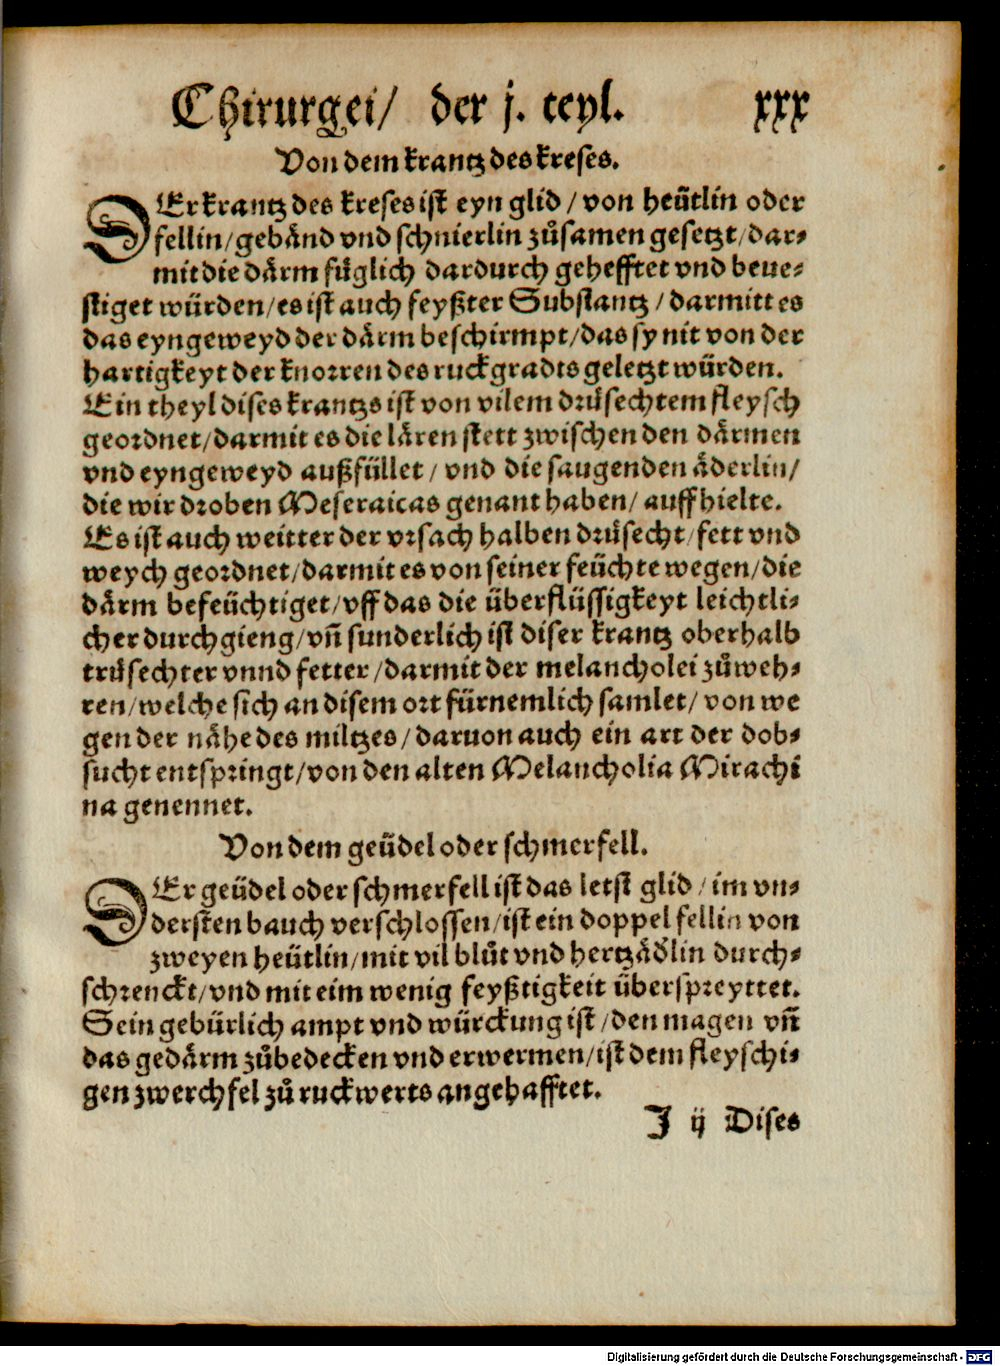 Chirurgei/ der j. teyl. xxx
Von dem krantz des kreses.
DEr krantz des kreses ist eyn glid/ von heütlin oder
fellin/ gebänd vnd schnierlin zůsamen gesetzt/ dar⸗
mit die därm füglich dardurch gehefftet vnd beue⸗
stiget würden/ es ist auch feyßter Substantz/ darmitt es
das eyngeweyd der därm beschirmpt/ das sy nit von der
hartigkeyt der knorren des ruckgradts geletzt würden.
Ein theyl dises krantzs ist von vilem drüsechtem fleysch
geordnet/ darmit es die lären stett zwischen den därmen
vnd eyngeweyd außfüllet/ vnd die saugenden äderlin/
die wir droben Meseraicas genant haben/ auffhielte.
Es ist auch weitter der vrsach halben drüsecht/ fett vnd
weych geordnet/ darmit es von seiner feüchte wegen/ die
därm befeüchtiget/ vff das die überflüssigkeyt leichtli⸗
cher durchgieng/ vñ sunderlich ist diser krantz oberhalb
trüsechter vnnd fetter/ darmit der melancholei zůweh⸗
ren/ welche sich an disem ort fürnemlich samlet/ von we
gen der nähe des miltzes/ daruon auch ein art der dob⸗
sucht entspringt/ von den alten Melancholia Mirachi
na genennet.
Von dem geüdel oder schmerfell.
DEr geüdel oder schmerfell ist das letst glid/ im vn⸗
dersten bauch verschlossen/ ist ein doppel fellin von
zweyen heütlin/ mit vil blůt vnd hertzädlin durch⸗
schrenckt/ vnd mit eim wenig feyßtigkeit überspreyttet.
Sein gebürlich ampt vnd würckung ist/ den magen vñ
das gedärm zůbedecken vnd erwermen/ ist dem fleyschi⸗
gen zwerchfel zů ruckwerts angehafftet.
J ij Dises
Digitalisierung gefördert durch die Deutsche Forschungsgemeinschaft - DFG